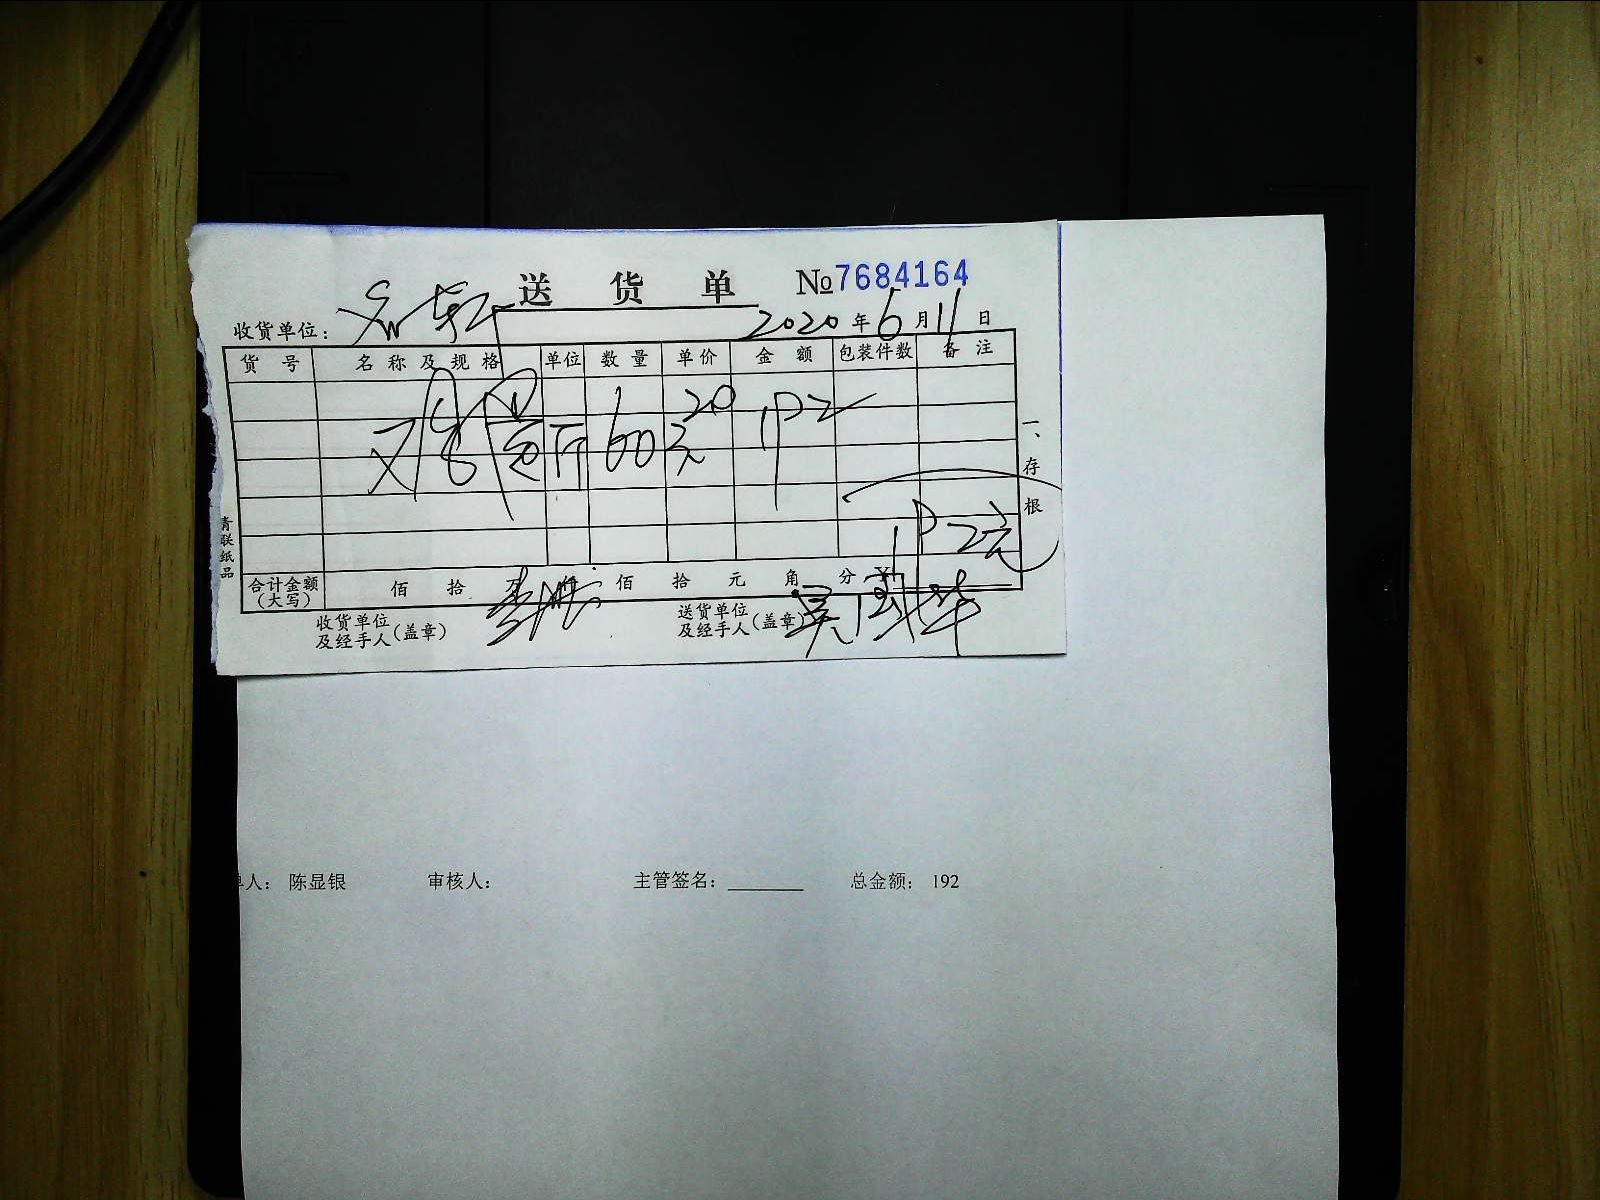 送货单 №7684164
收货单位： 2020年6月11日
货号 名称及规格 单位 数量 单价 金额 包装件数 备注
斤 60 192
192元
一、存根
青联纸品
合计金额（大写） 佰 拾 万 佰 拾 元 角 分 ¥
收货单位及经手人（盖章） 送货单位及经手人（盖章）
单人： 陈显银 审核人： 主管签名： 总金额： 192